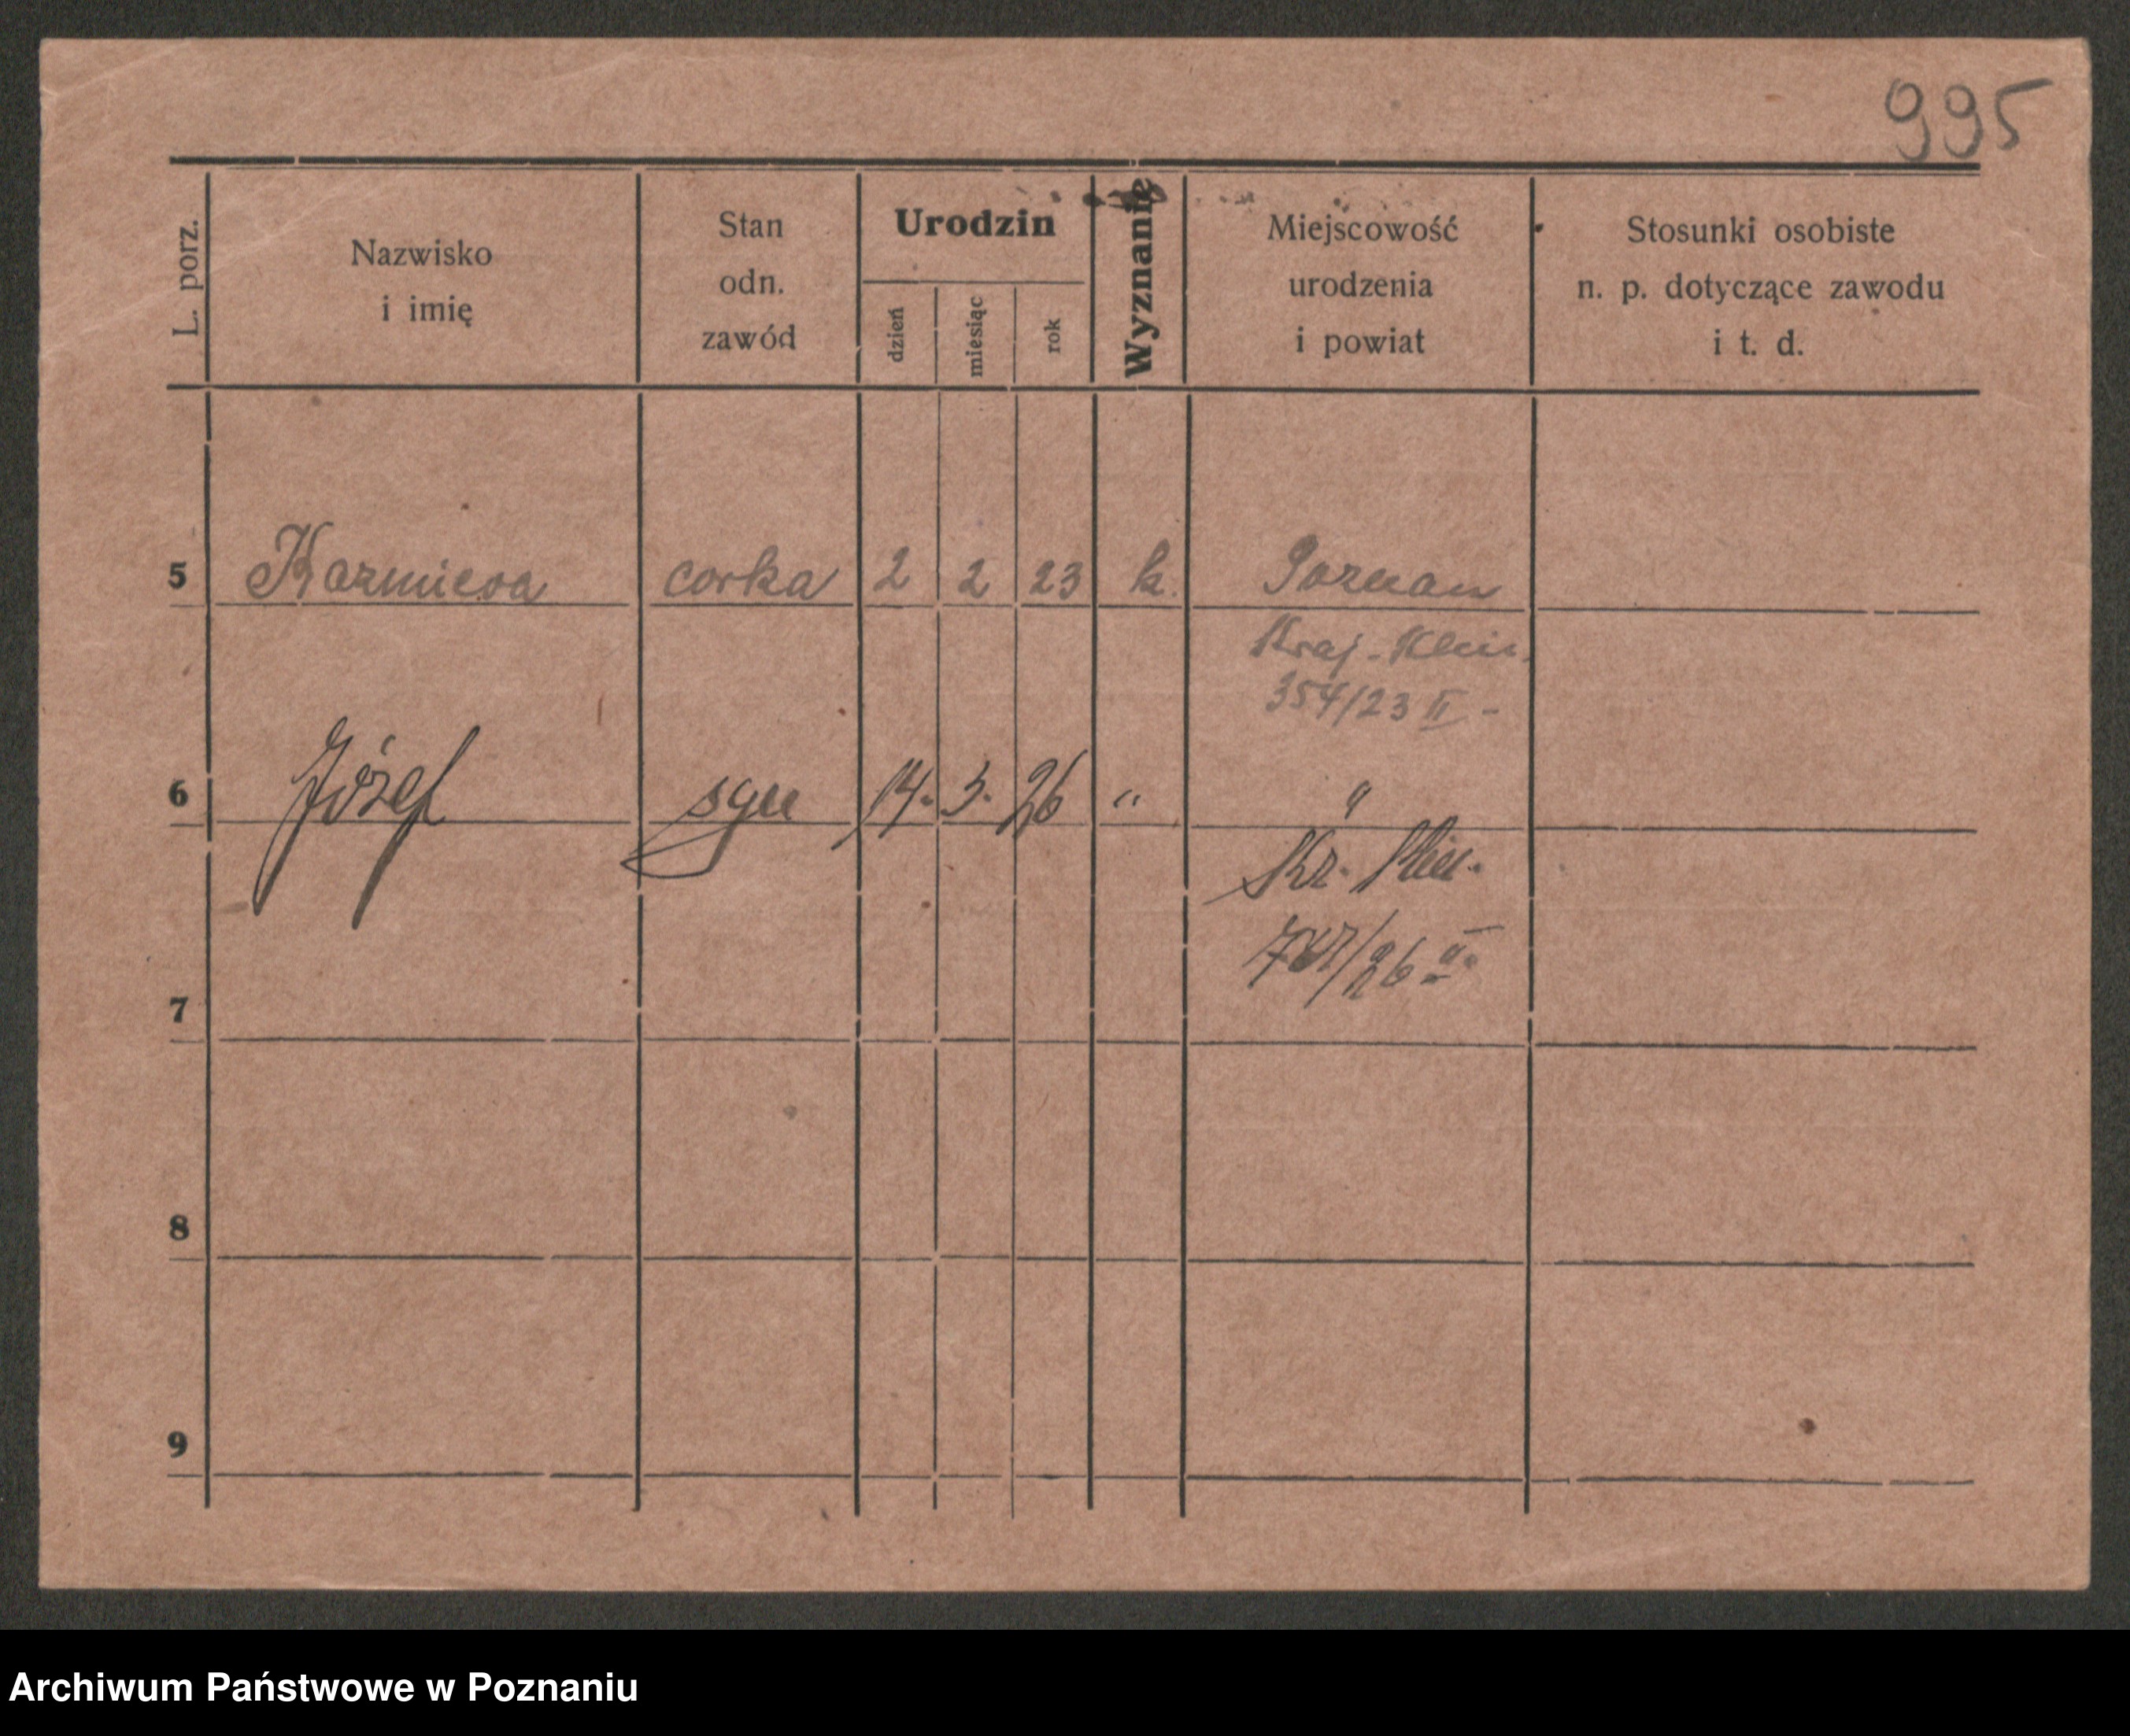 995
L. porz.
Nazwisko
i imię
Stan
odn.
zawód
Urodzin
dzień
miesiąc
rok
Wyznanie
Miejscowość
urodzenia
i powiat
Stosunki osobiste
n. p. dotyczące zawodu
i t. d.
5 Kazmiera corka 2 2 23 k. Poznan
Kraj-
354/23 II -
6 Józef syn 14. 3. 26 " "
Kr.
/26 II.
7
8
9
Archiwum Państwowe w Poznaniu